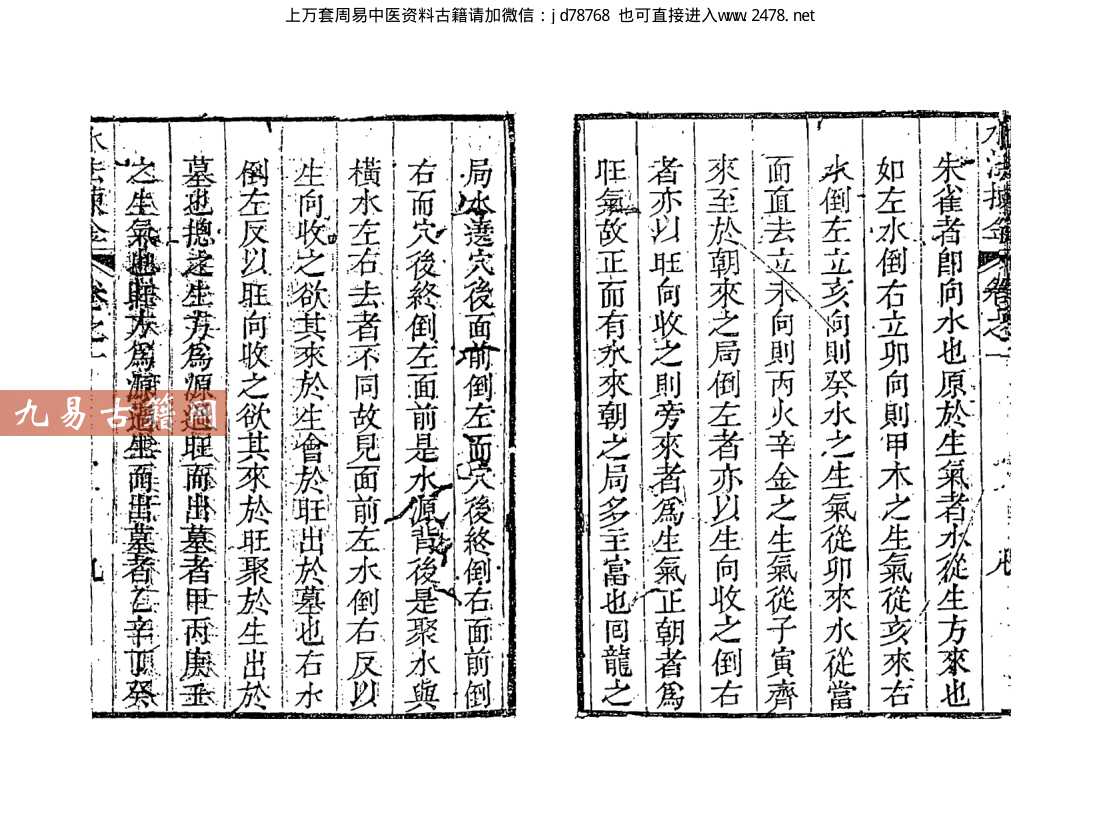 上万套周易中医资料古籍请加微信：jd78768 也可直接进入www.2478.net
朱雀者即向水也原於生氣者水從生方來也
如左水倒右立卯向則甲木之生氣從亥來右
水倒左立亥向則癸水之生氣從卯來水從當
面直去立未向則丙火辛金之生氣從子寅齊
來至於朝來之局倒左者亦以生向收之倒右
者亦以旺向收之則旁來者為生氣正朝者為
旺氣故正面有水來朝之局多主富也囘龍之
局水遶穴後面前倒左而穴後終倒右面前倒
右而穴後終倒左面前是水源背後是聚水與
橫水左右去者不同故見面前左水倒右反以
生向收之欲其來於生會於旺出於墓也右水
倒左反以旺向收之欲其來於旺聚於生出於
墓也摠之生方為源過旺而出墓者甲丙庚壬
之生氣也旺方為源過生而出墓者乙辛丁癸
九易古籍网